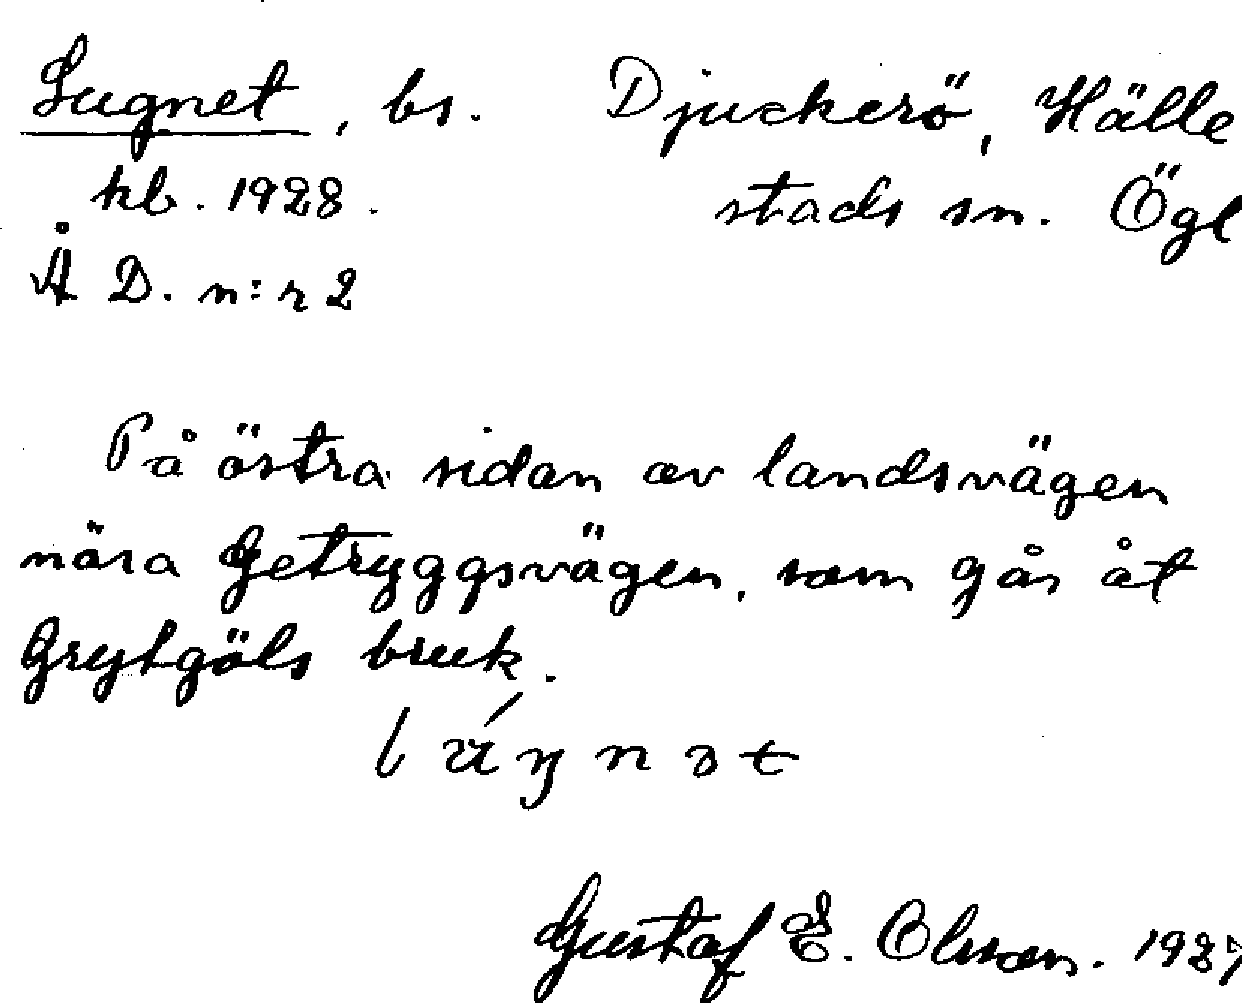 Lugnet, bs. Djuckerö, Hälle
kb. 1928. stads sn. Ögl
Å D. n:r 2
På östra sidan av landsvägen
nära Getryggsvägen, som går åt
Grytgöls bruk.
Gustaf E. Olsson. 1927